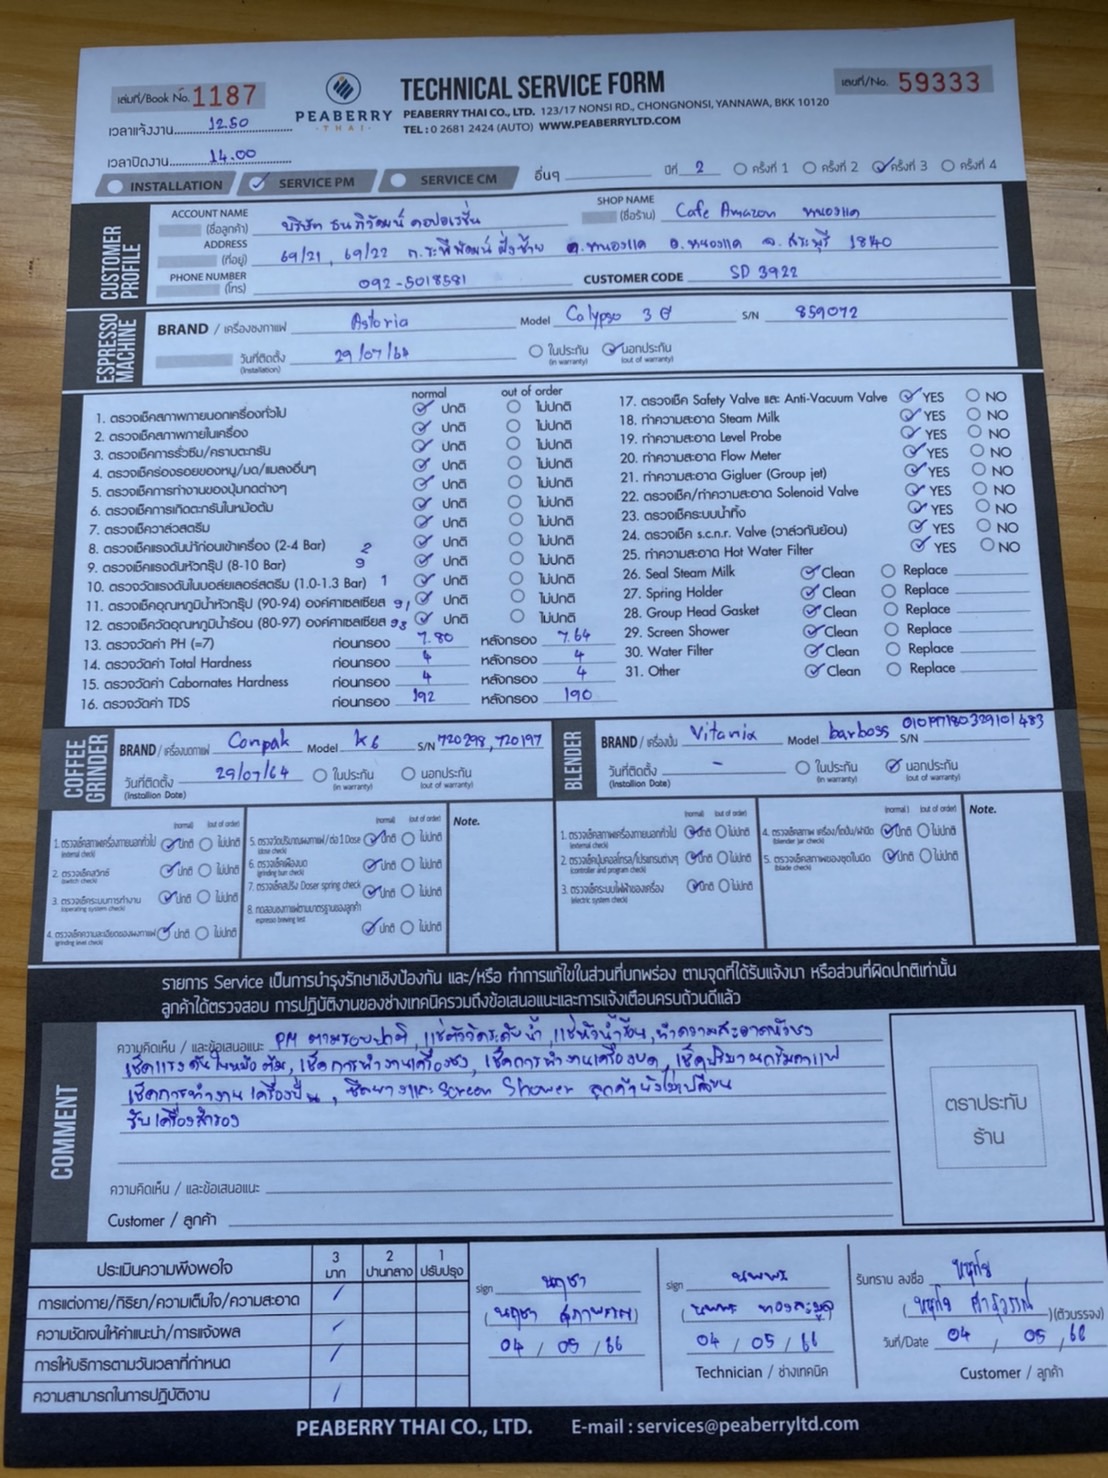 เล่มที่/Book No. 1187
PEABERRY
THAI
TECHNICAL SERVICE FORM
PEABERRY THAI CO., LTD. 123/17 NONSI RD., CHONGNONSI, YANNAWA, BKK 10120
TEL : 0 2681 2424 (AUTO) WWW.PEABERRYLTD.COM
เลขที่/No. 59333
เวลาแจ้งงาน 12.50
เวลาปิดงาน 14.00
INSTALLATION SERVICE PM SERVICE CM อื่นๆ ปีที่ 2 ครั้งที่ 1 ครั้งที่ 2 ครั้งที่ 3 ครั้งที่ 4
CUSTOMER PROFILE
ACCOUNT NAME (ชื่อลูกค้า) บริษัท ธนภิวัฒน์ คอปอเรชั่น
SHOP NAME (ชื่อร้าน) Cafe Amazon หนองแค
ADDRESS (ที่อยู่) 69/21, 69/22 ถ.ระพีพัฒน์ฝั่งซ้าย ต.หนองแค อ.หนองแค จ.สระบุรี 1840
PHONE NUMBER (โทร) 092-5018581 CUSTOMER CODE SD 3922
ESPRESSO MACHINE
BRAND / เครื่องชงกาแฟ Astoria Model Calypso 3G S/N 859072
วันที่ติดตั้ง (Installation) 29/07/64 ในประกัน (in warranty) นอกประกัน (out of warranty)
normal out of order
1. ตรวจเช็คสภาพภายนอกเครื่องทั่วไป ปกติ ไม่ปกติ
2. ตรวจเช็คสภาพภายในเครื่อง ปกติ ไม่ปกติ
3. ตรวจเช็คการรั่วซึม/คราบตะกรัน ปกติ ไม่ปกติ
4. ตรวจเช็คร่องรอยของหนู/มด/แมลงอื่นๆ ปกติ ไม่ปกติ
5. ตรวจเช็คการทำงานของปุ่มกดต่างๆ ปกติ ไม่ปกติ
6. ตรวจเช็คการเกิดตะกรันในหม้อต้ม ปกติ ไม่ปกติ
7. ตรวจเช็ควาล์วสตรีม ปกติ ไม่ปกติ
8. ตรวจเช็คแรงดันน้ำก่อนเข้าเครื่อง (2-4 Bar) 2 ปกติ ไม่ปกติ
9. ตรวจเช็คแรงดันหัวกรุ๊ป (8-10 Bar) 9 ปกติ ไม่ปกติ
10. ตรวจวัดแรงดันในบอยล์เลอร์สตรีม (1.0-1.3 Bar) 1 ปกติ ไม่ปกติ
11. ตรวจเช็คอุณหภูมิน้ำหัวกรุ๊ป (90-94) องศาเซลเซียส 91 ปกติ ไม่ปกติ
12. ตรวจเช็ควัดอุณหภูมิน้ำร้อน (80-97) องศาเซลเซียส 93 ปกติ ไม่ปกติ
13. ตรวจวัดค่า PH (=7) ก่อนกรอง 7.80 หลังกรอง 7.64
14. ตรวจวัดค่า Total Hardness ก่อนกรอง 4 หลังกรอง 4
15. ตรวจวัดค่า Cabornates Hardness ก่อนกรอง 4 หลังกรอง 4
16. ตรวจวัดค่า TDS ก่อนกรอง 192 หลังกรอง 190
17. ตรวจเช็ค Safety Valve และ Anti-Vacuum Valve YES NO
18. ทำความสะอาด Steam Milk YES NO
19. ทำความสะอาด Level Probe YES NO
20. ทำความสะอาด Flow Meter YES NO
21. ทำความสะอาด Gigluer (Group jet) YES NO
22. ตรวจเช็ค/ทำความสะอาด Solenoid Valve YES NO
23. ตรวจเช็คระบบน้ำทิ้ง YES NO
24. ตรวจเช็ค s.c.n.r. Valve (วาล์วกันย้อน) YES NO
25. ทำความสะอาด Hot Water Filter YES NO
26. Seal Steam Milk Clean Replace
27. Spring Holder Clean Replace
28. Group Head Gasket Clean Replace
29. Screen Shower Clean Replace
30. Water Filter Clean Replace
31. Other Clean Replace
COFFEE GRINDER
BRAND / เครื่องบดกาแฟ Compak Model K6 S/N 720298, 720197
วันที่ติดตั้ง (Installion Date) 29/07/64 ในประกัน (in warranty) นอกประกัน (out of warranty)
BLENDER
BRAND / เครื่องปั่น Vitamix Model barboss S/N 010917180329101483
วันที่ติดตั้ง (Installion Date) - ในประกัน (in warranty) นอกประกัน (out of warranty)
(normal) (out of order)
1. ตรวจเช็คสภาพเครื่องภายนอกทั่วไป (external check) ปกติ ไม่ปกติ
2. ตรวจเช็คสวิทซ์ (switch check) ปกติ ไม่ปกติ
3. ตรวจเช็คระบบการทำงาน (operating system check) ปกติ ไม่ปกติ
4. ตรวจเช็คความละเอียดของผงกาแฟ (grinding level check) ปกติ ไม่ปกติ
(normal) (out of order)
5. ตรวจวัดปริมาณผงกาแฟ/ต่อ 1 Dose (dose check) ปกติ ไม่ปกติ
6. ตรวจเช็คเฟืองบด (grinding burr check) ปกติ ไม่ปกติ
7. ตรวจเช็คสปริง Doser spring check ปกติ ไม่ปกติ
8. ทดสอบชงกาแฟตามมาตรฐานของลูกค้า espresso brewing test ปกติ ไม่ปกติ
Note.
(normal) (out of order)
1. ตรวจเช็คสภาพเครื่องภายนอกทั่วไป (external check) ปกติ ไม่ปกติ
2. ตรวจเช็คปุ่มคอลโทรล/โปรแกรมต่างๆ (controller and program check) ปกติ ไม่ปกติ
3. ตรวจเช็คระบบไฟฟ้าของเครื่อง (electric system check) ปกติ ไม่ปกติ
(normal) (out of order)
4. ตรวจเช็คสภาพ เครื่อง/โถปั่น/ฝาปิด (blender jar check) ปกติ ไม่ปกติ
5. ตรวจเช็คสภาพของชุดใบมีด (blade check) ปกติ ไม่ปกติ
Note.
รายการ Service เป็นการบำรุงรักษาเชิงป้องกัน และ/หรือ ทำการแก้ไขในส่วนที่บกพร่อง ตามจุดที่ได้รับแจ้งมา หรือส่วนที่ผิดปกติเท่านั้น
ลูกค้าได้ตรวจสอบ การปฏิบัติงานของช่างเทคนิครวมถึงข้อเสนอแนะและการแจ้งเตือนครบถ้วนดีแล้ว
COMMENT
ความคิดเห็น / และข้อเสนอแนะ PM ตามรอบปกติ, แช่ตัววัดระดับน้ำ, แช่หัวน้ำร้อน, ทำความสะอาดหัวชง
เช็คแรงดันในหม้อต้ม, เช็คการทำงานเครื่องชง, เช็คการทำงานเครื่องบด, เช็คปริมาณกรัมกาแฟ
เช็คการทำงานเครื่องปั่น, ซีลยางและ Screen Shower ลูกค้ายังไม่เปลี่ยน
รับเครื่องสำรอง
ความคิดเห็น / และข้อเสนอแนะ
Customer / ลูกค้า
ตราประทับ
ร้าน
ประเมินความพึงพอใจ 3 มาก 2 ปานกลาง 1 ปรับปรุง
การแต่งกาย/กิริยา/ความเต็มใจ/ความสะอาด /
ความชัดเจนให้คำแนะนำ/การแจ้งผล /
การให้บริการตามวันเวลาที่กำหนด /
ความสามารถในการปฏิบัติงาน /
sign นฤชา
04 / 05 / 66
sign นพพร
04 / 05 / 66
Technician / ช่างเทคนิค
รับทราบ ลงชื่อ
(ตัวบรรจง)
วันที่/Date 04 / 05 / 66
Customer / ลูกค้า
PEABERRY THAI CO., LTD. E-mail : services@peaberryltd.com